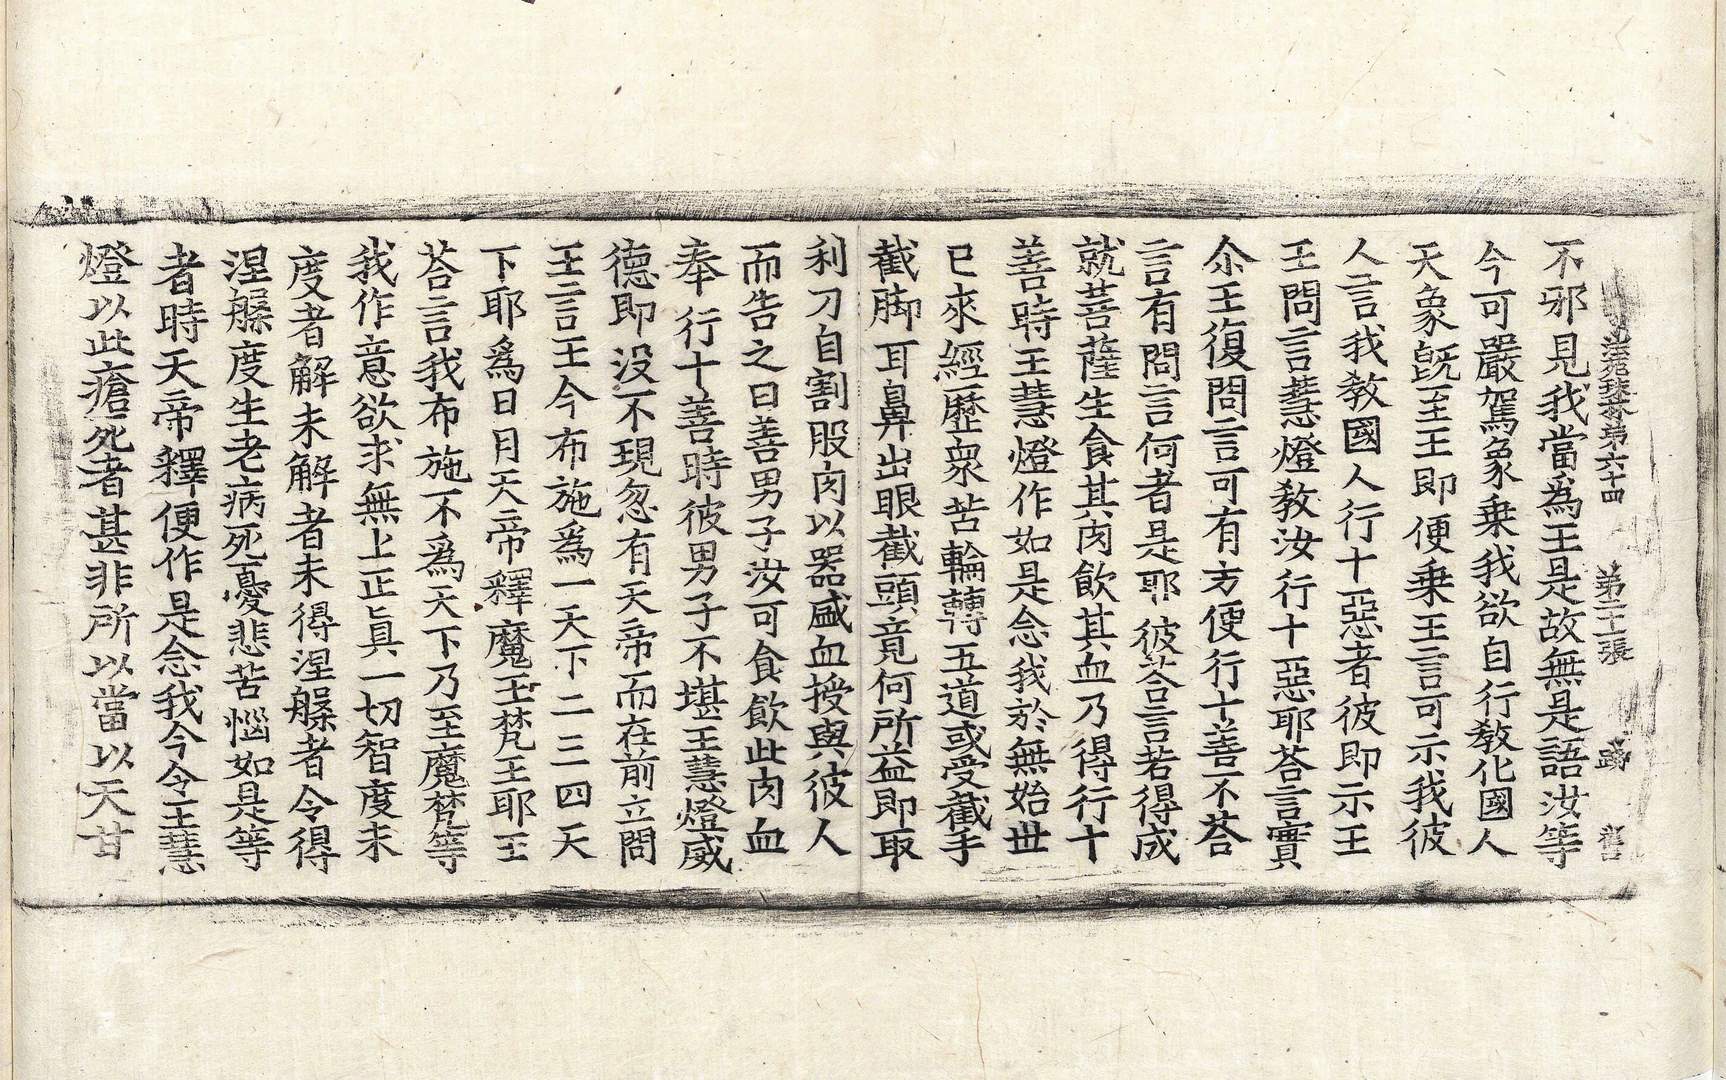 法苑珠林第六十四　第二十一張　𨁈　舊
不邪見我當爲王是故無是語汝等
今可嚴駕象乗我欲自行教化國人
天象旣至王即便乗王言可示我彼
人言我教國人行十惡者彼即示王
王問言慧燈教汝行十惡耶荅言實
尒王復問言可有方便行十善不荅
言有問言何者是耶彼荅言若得成
就菩薩生食其肉飲其血乃得行十
善時王慧燈作如是念我於無始丗
已來經歷衆苦輪轉五道或受截手
截脚耳鼻出眼截頭竟何所益即取
利刀自割股肉以器盛血授與彼人
而告之曰善男子汝可食飲此肉血
奉行十善時彼男子不堪王慧燈威
德即没不現忽有天帝而在前立問
王言王今布施爲一天下二三四天
下耶爲日月天帝釋魔王梵王耶王
荅言我布施不爲天下乃至魔梵等
我作意欲求無上正真一切智度未
度者解未解者未得涅槃者令得
涅槃度生老病死憂悲苦惱如是等
者時天帝釋便作是念我今令王慧
燈以此瘡死者甚非所以當以天甘